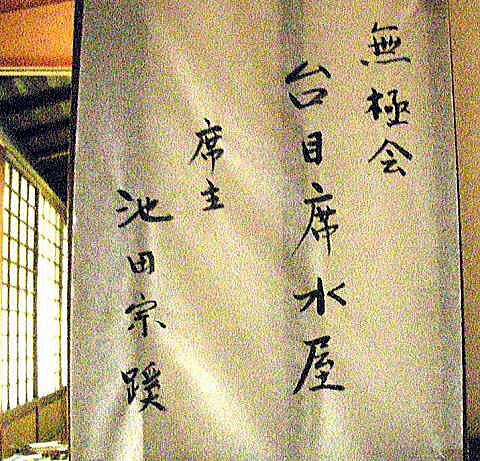 無極会
台目席水屋
席主
池田宗蹊